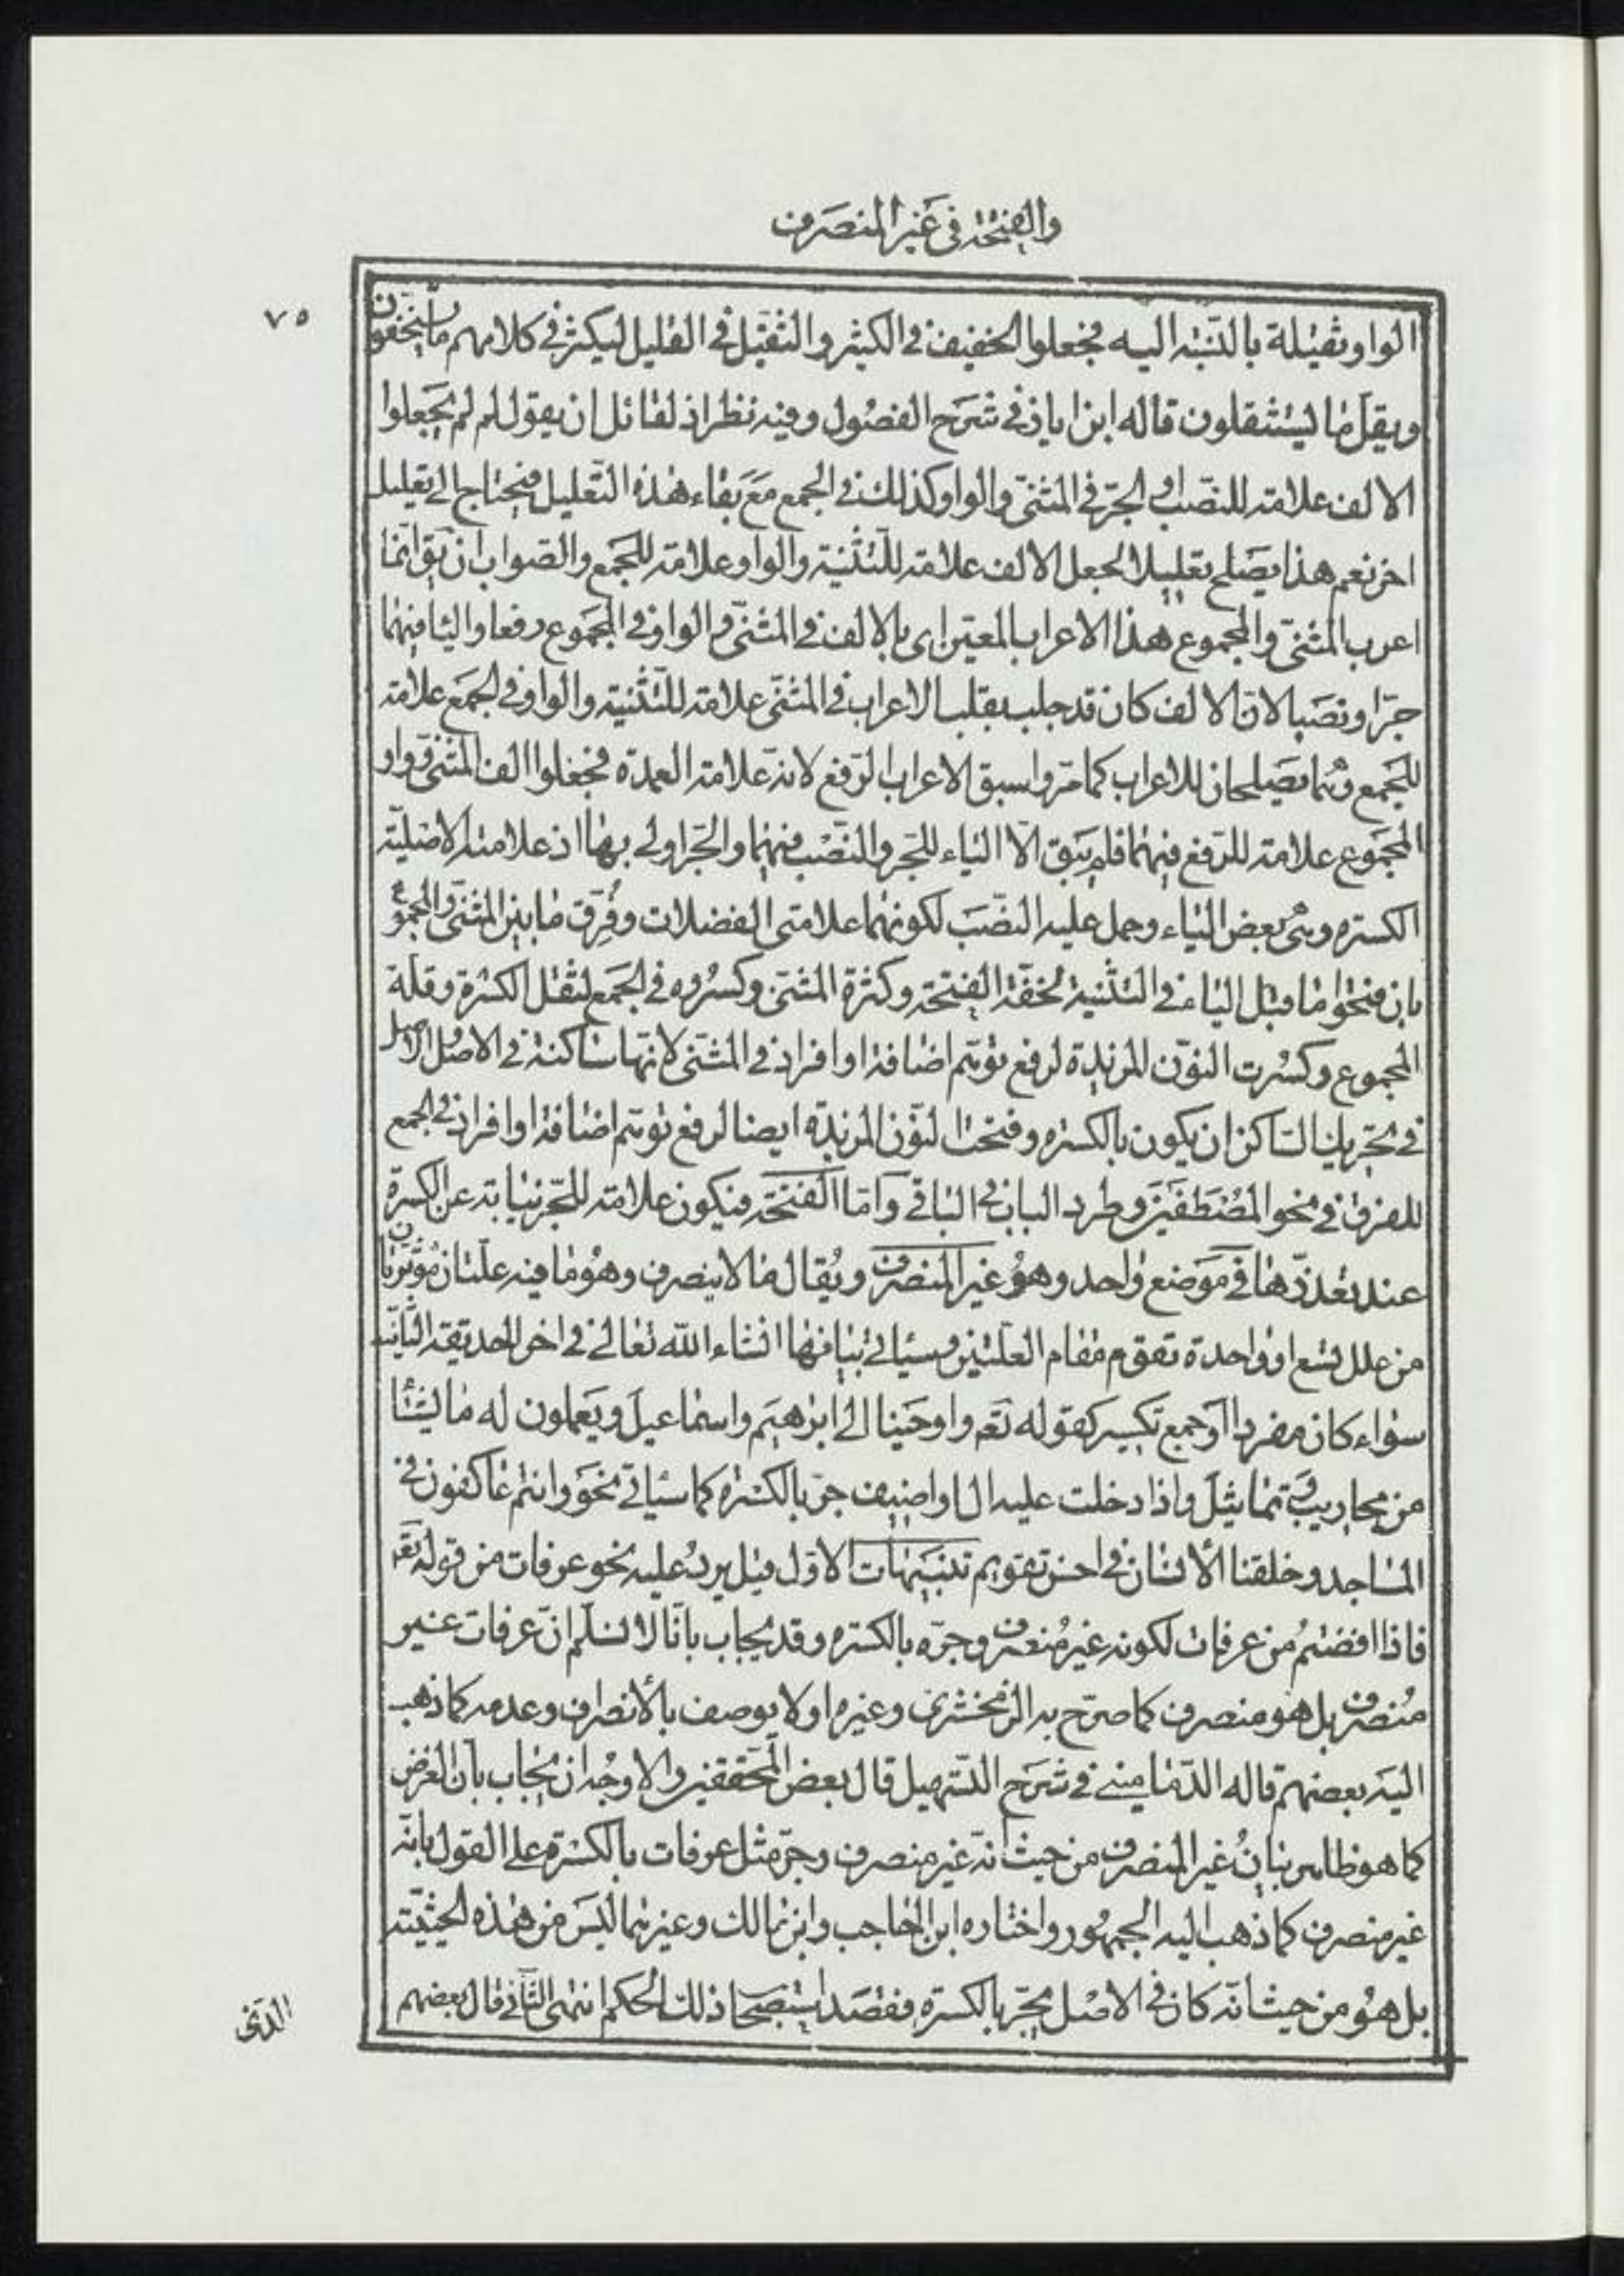 والفتحة فى غير المنصرف
٧٥
الواو ثقيلة بالنّسبة اليه فجعلوا الخفيف فى الكثير والثقيل فى القليل ليكثر فى كلامهم ما يستخفون
ويقلّ ما يستثقلون قاله ابن اياز فى شرح الفصول وفيه نظر اذ لقائل ان يقول لم لم يجعلوا
الالف علامة للنصب او الجرّ فى المثنّى والواو كذلك فى الجمع مع بقاء هذه التّعليل فيحتاج الى تعليل
اخر نعم هذا يصلح تعليلا لجعل الالف علامة للتّثنية والواو علامة للجمع والصّواب ان يق انّما
اعرب المثنّى والمجموع هذا الاعراب المعيّن اى بالالف فى المثنّى والواو فى المجموع رفعا والياء فيهما
جرّا ونصبا لانّ الالف كان قد جلب بقلب الاعراب فى المثنّى علامة للتّثنية والواو فى الجمع علامة
للجمع وهما يصلحان للاعراب كما مرّ واسبق الاعراب الرّفع لانه علامة العمدة فجعلوا الف المثنّى وواو
المجموع علامة للرّفع فيهما فلم يبق الّا الياء للجر والنّصب فيهما والجرّ اولى بها اذ علامته الاصليّة
الكسرة وهى بعض الياء وحمل عليه النّصب لكونهما علامتى الفضلات وفُرّق ما بين المثنّى والمجموع
بان فتحوا ما قبل الياء فى التّثنية لخفّة الفتحة وكثرة المثنّى وكسروه فى الجمع لثقل الكسرة وقلّة
المجموع وكسرت النّون المزيدة لرفع توهّم اضافة او افراد فى المثنّى لانّها ساكنة فى الاصل والاصل
فى تحريك السّاكن ان يكون بالكسرة وفتحت النّون المزيدة ايضا لرفع توهّم اضافة او افراد فى الجمع
للفرق فى نحو المُصْطَفَيْنَ وطرد الباب فى الباقى وامّا الفتحة فيكون علامة للجّر نيابة عن الكسرة
عند تعذّرها فى موضع واحد وهو غير المنصرف ويُقال ما لا ينصرف وهو ما فيه علّتان مؤثّرتان
من علل تسع او واحدة تقوم مقام العلّتين وسيأتى بيانها انشاء الله تعالى فى اخر الحديقة الثّانية
سواء كان مفردا او جمع تكسير كقوله تعم واوحينا الى ابرهيم واسماعيل ويعملون له ما يشاء
من محاريب وتماثيل واذا دخلت عليه ال او اضيف جرّ بالكسرة كما سيأتى نحو وانتم عاكفون فى
المساجد وخلقنا الأنسان فى احسن تقويم تنبيهات الاوّل قيل يرد عليه نحو عرفات من قوله تعم
فاذا افضتم من عرفات لكونه غير مُنصرف وجرّه بالكسرة وقد يجاب بانّا لا نسلّم انّ عرفات غير
مُنصرف بل هو منصرف كما صرّح به الزّمخشرى وغيره او لا يوصف بالأنصراف وعدمه كما ذهب
اليه بعضهم قاله الدّمامينى فى شرح التّسهيل قال بعض المحققين والاوجُه ان يُجاب بان الغرض
كما هو ظاهر بيان غير المنصرف من حيث انّه غير منصرف وجرّ مثل عرفات بالكسرة على القول بانّه
غير منصرف كما ذهب اليه الجمهور واختاره ابن الحاجب وابن مالك وغيرهما ليس من هذه الحيثيّة
بل هو من حيث انّه كان فى الاصل يجّر بالكسرة فقصد استصحاب ذلك الحكم انتهى الثّانى قال بعضهم
الذى